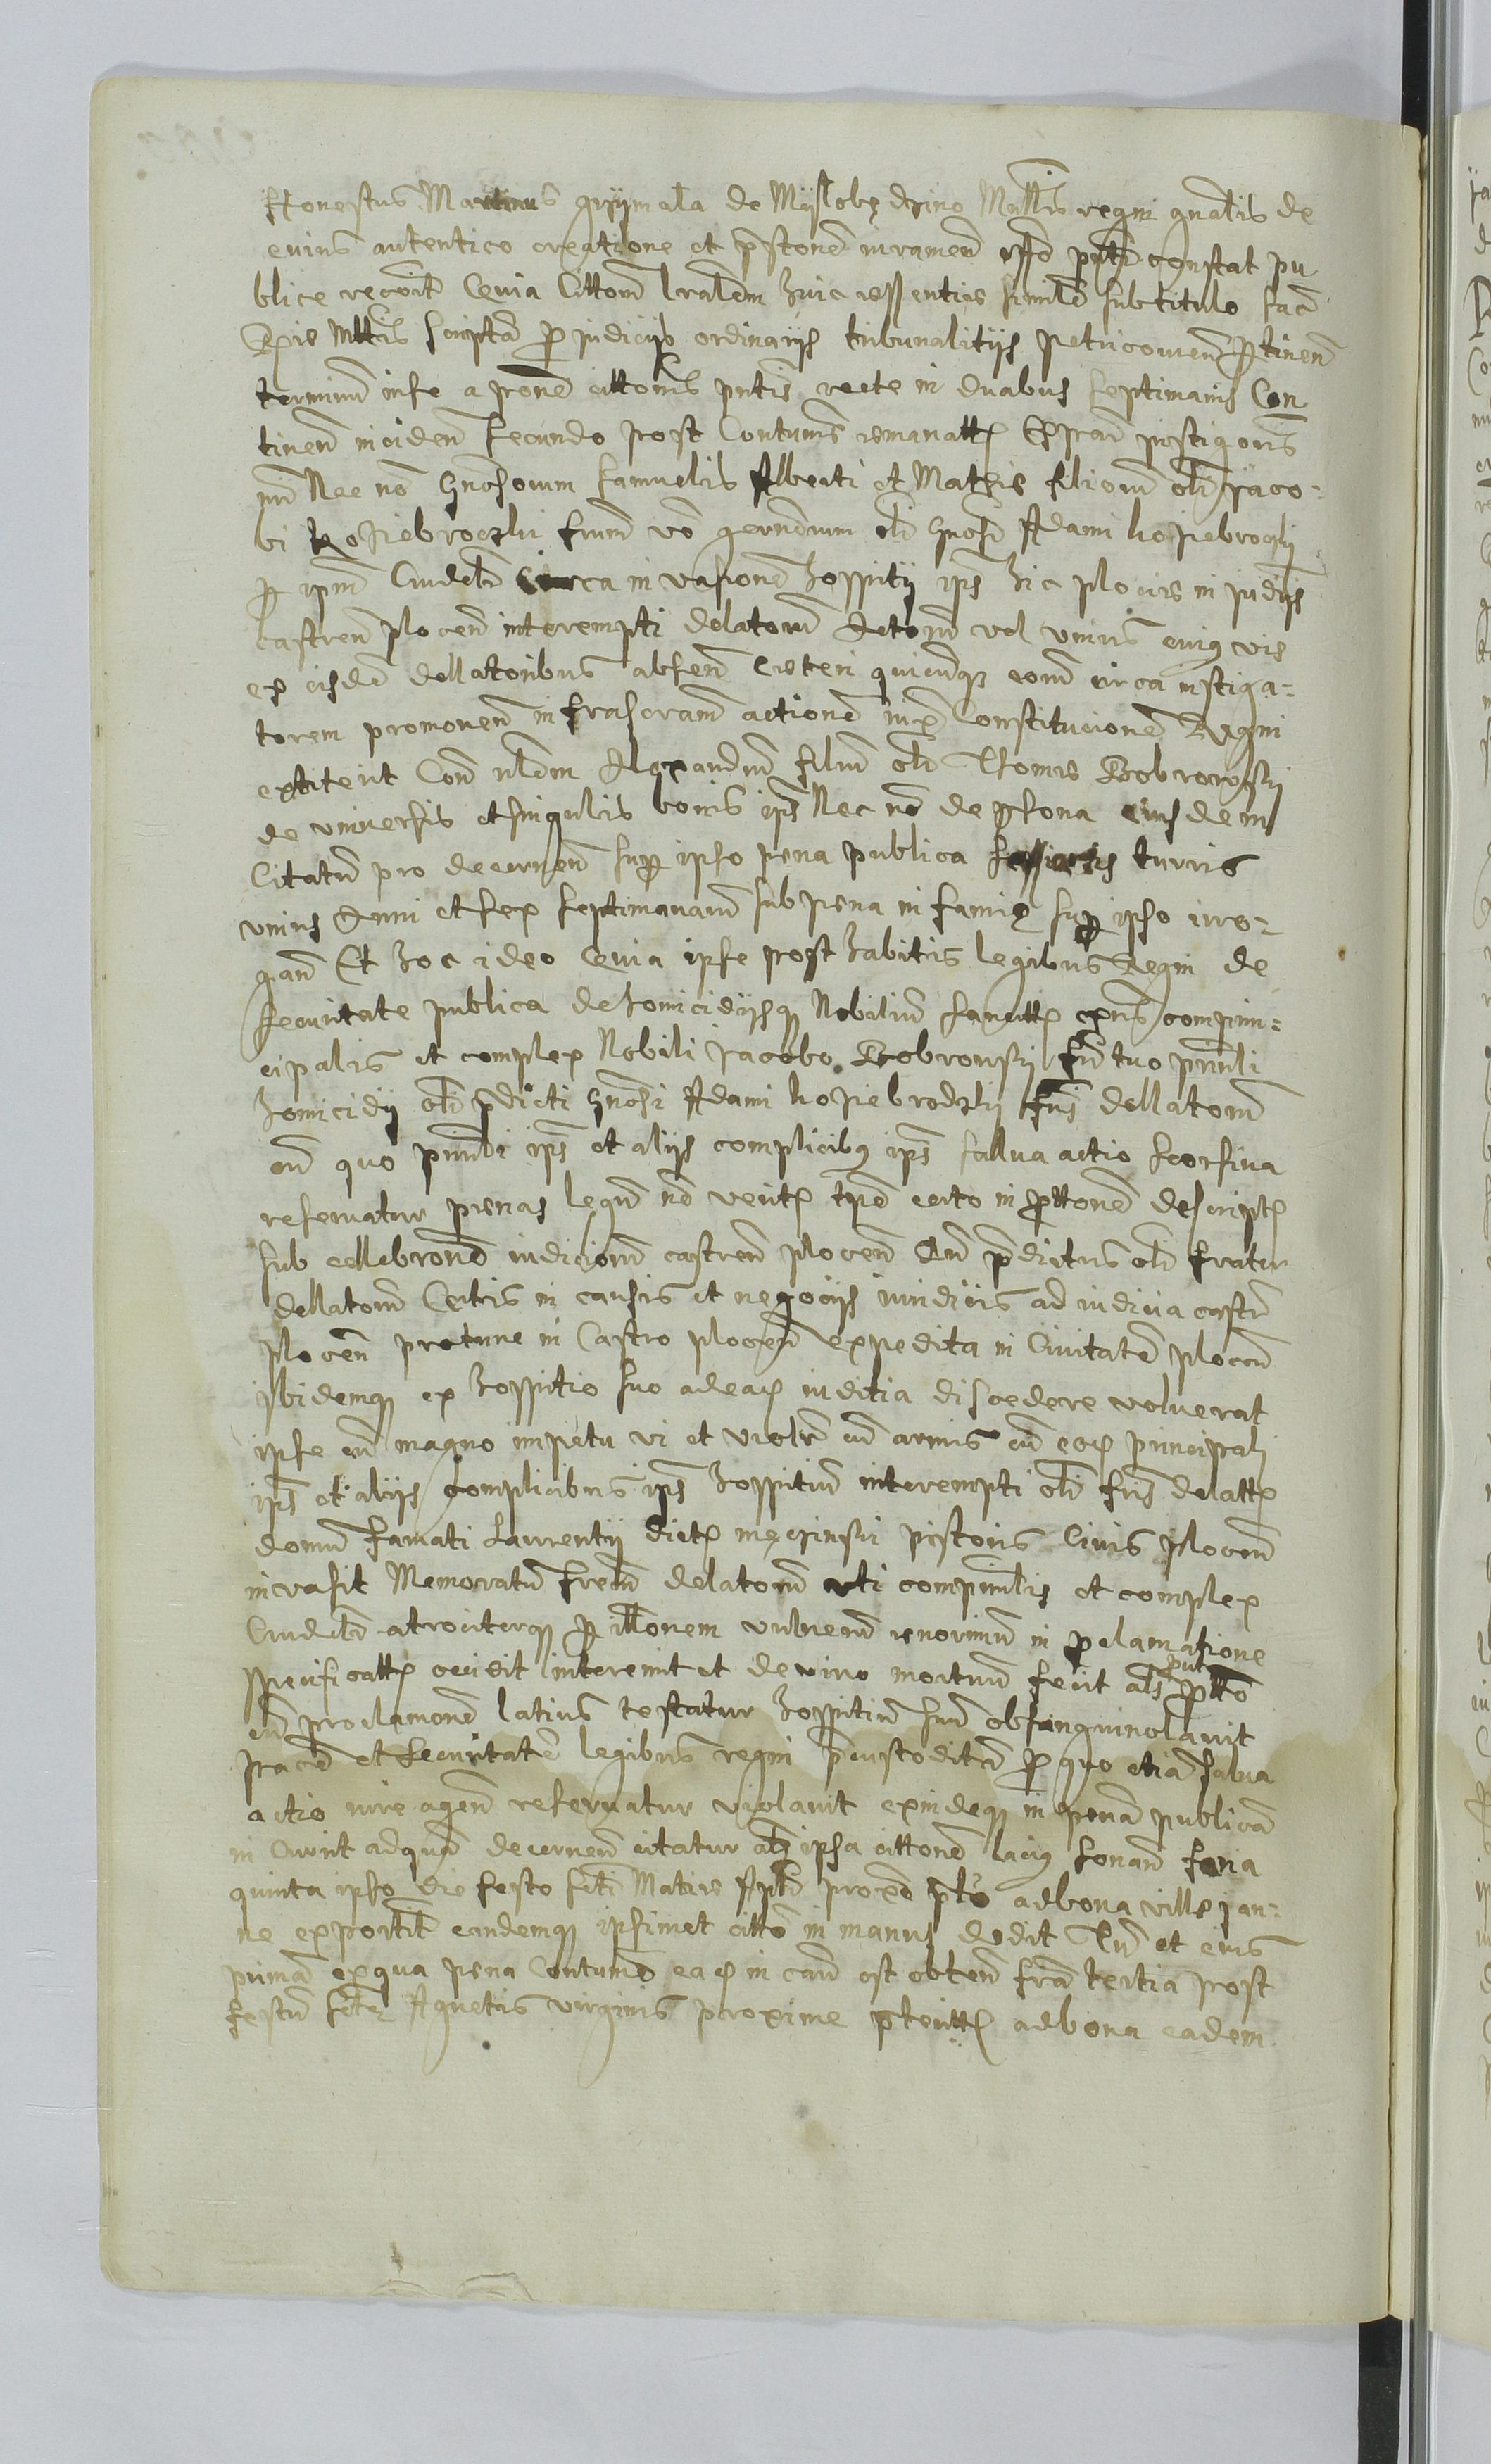 Honestus Martinus grzÿmala de Mÿslobędzino Mttis regni gnalis de
cuius autentico creatione et pstone iuramen offo pnti constat pu
blice recoit Quia Cittom lralem huic essentiae simile sub titulo sac
Rgie Mttis scripta p judicijs ordinarijs tribunalitijs petricouien ptinen
terminu inse a pone cittonis pntis recte in duabus septimanis Con
tinen inciden secundo post Contums emanatt Ex pare instigoris
nri Nec no Gnosorum Samuelis Alberti et Mathie filiorum oli Jaco-
bi kosiebrodzki frum vo germanorum oli Gnosi Adami kosiebrodzkj
p ipm Crudelr Circa invasione hospitij ips hic plocie in judijs
castren plocen interempti delatorum Actorum vel vnius cuiqvis
ex eisde dellatoribus absen Citteri quicunq eorum circa instiga-
torem promonen infrascram actione iux Constitucione Regni
extiterit Con nblem Alexandrum filium oli Thome Bobrowski
de vniuersis et singulis bonis ips Nec no de psona eiusdem
Citatum pro decernen sup ipso pena publica sessionis turris
vnius Anni et sex septimanarum sub pena infamiae sup ipso irro-
gan Et hoc ideo Quia ipse post habitis legibus Regni de
securitate publica de homicidijsq Nobilium sancitt exns comprin-
cipalis et complex Nobili Jacobo Bobrowski fri tuo prnli
homicidij oli pdicti Gnosi Adami kosiebrodzkj fris dellatorum
cu quo prinli ips et alijs complicibq ips sallua actio seorsiua
reseruatur penas legum no verit tpe certo in pttone descript
sub cellebrone iudiciorum castren plocen Cum pdictus oli frater
dellatorum Certis in causis et negocijs iuridicis ad iudicia castr
plocen protunc in Castro plocen expedita in Ciuitate plocen
ibidemq ex hospitio suo ad ea iuditia discedere voluerat
ipse cu magno impetu vi et violr cu armis cu eo principali
ips et alijs complicibus ips hospitium interempti oli fris delatt
domu famati Laurentij dict męczinski pistoris Ciuis plocen
inuasit Memoratu frem delatorum uti comprinlis et complex
Crudelr atrociterq p illonem vulnerum enormium in pclamatione
specificatt occidit interemit et de viuo mortuum fecit als put ptto
cu proclamone latius testatur hospitium suum obsanguinolauit
pace et securitate legibus regni pcustodita p quo etia salua
actio iure agen reseruatur violauit exindeq in pena publica
in Currit ad qua decernen citatur atz ipsa cittone laciq sonan feria
quinta ipso die festo scti Mathie Apli proxe ptto ad bona ville jan-
ne exportit eandemq ipsimet citto in manus dedit Tu et eius
prima ex qua pena Contumo ea in causa est obten feria tertia post
festu sctae Agnetis virginis proxime pteritt ad bona eadem